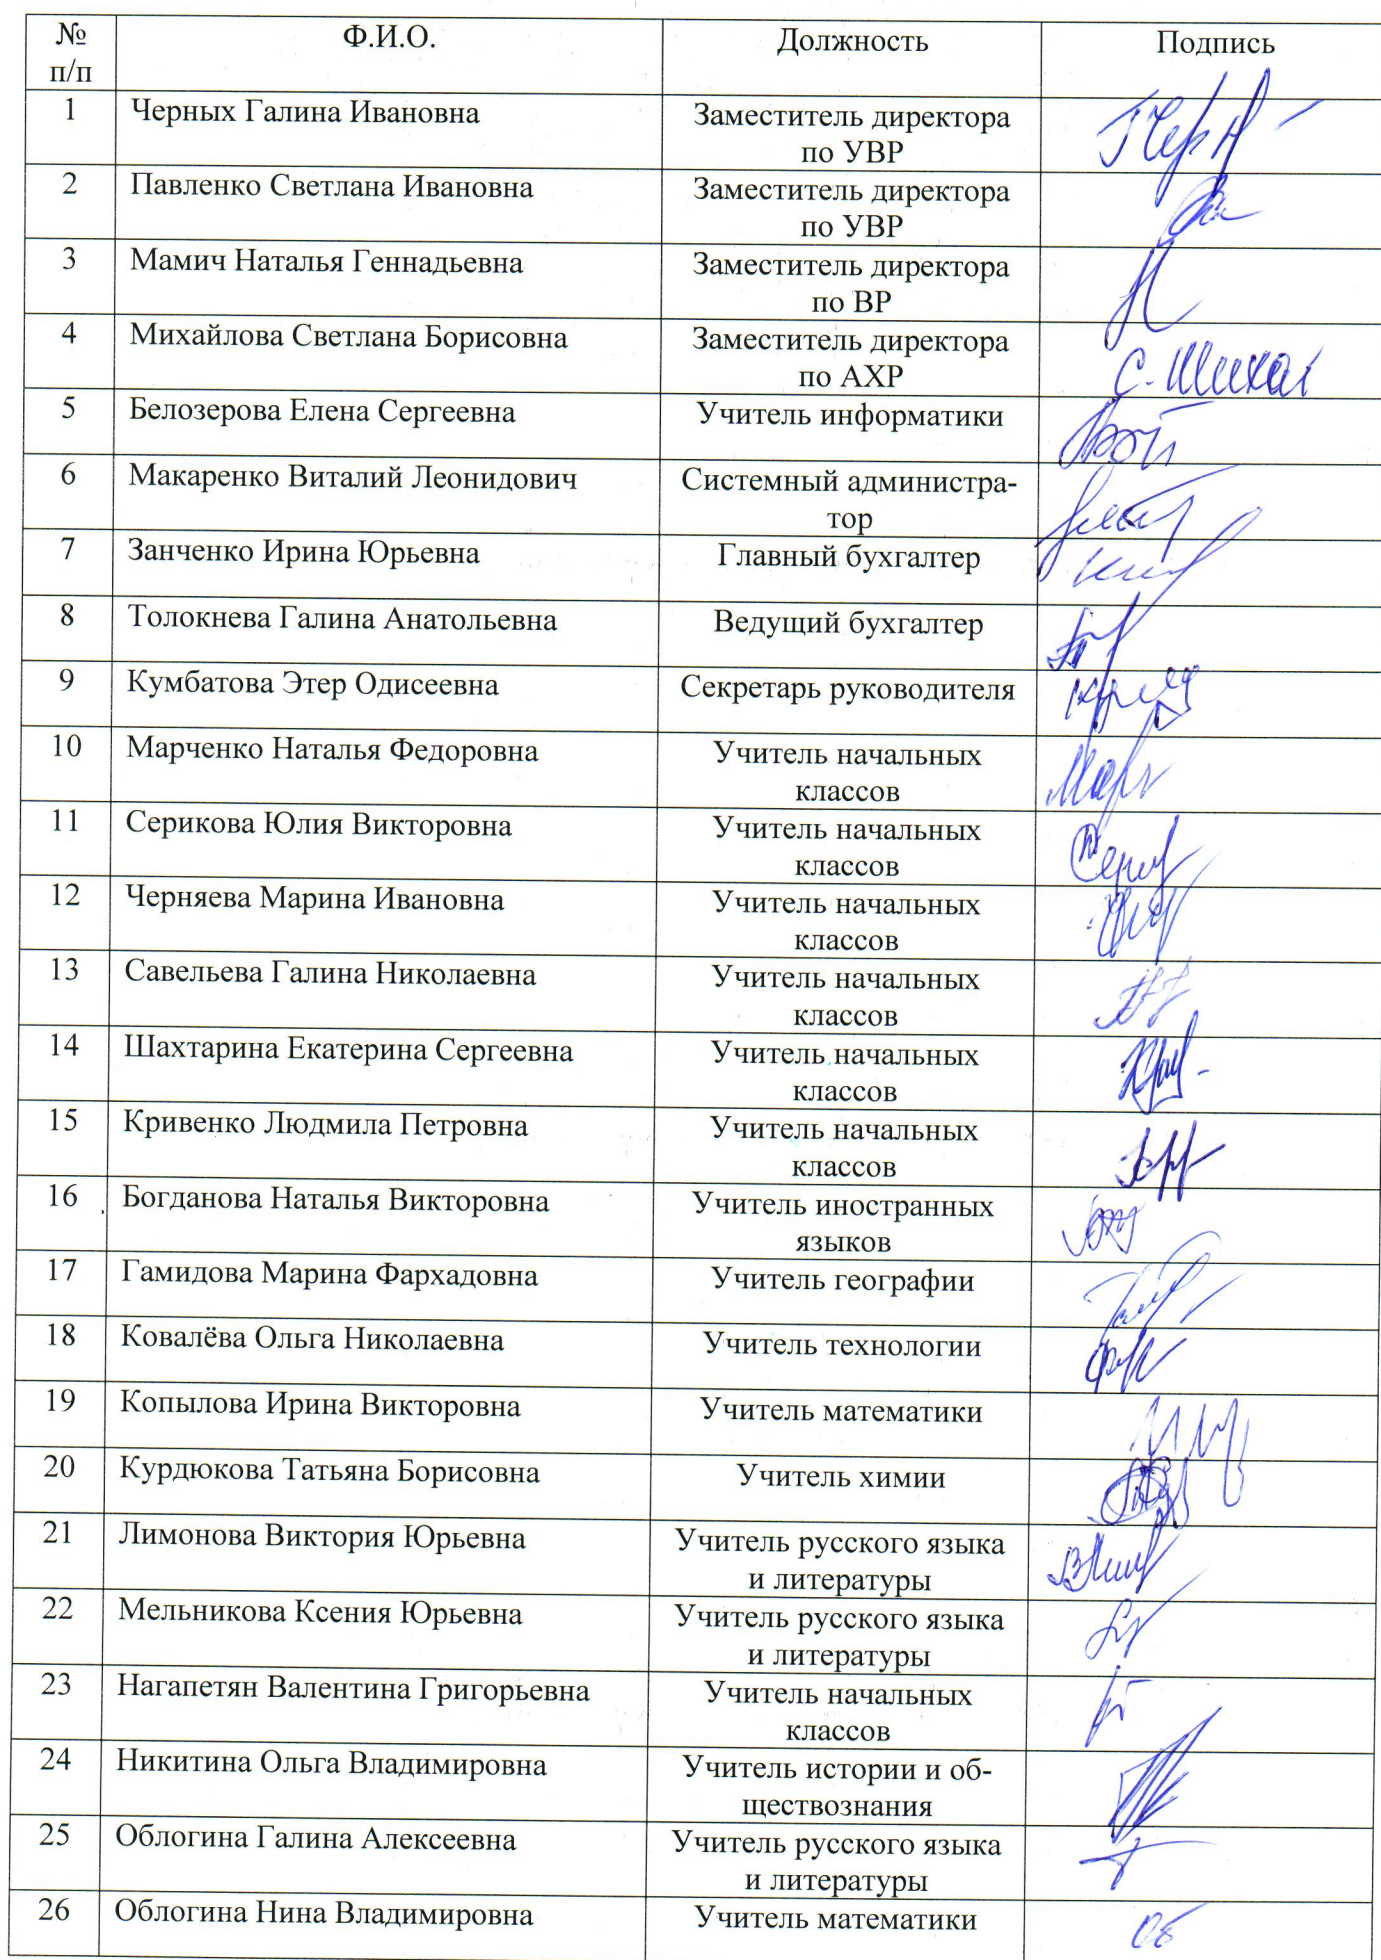 № Ф.И.О. Должность Подпись
п/п
1 Черных Галина Ивановна Заместитель директора
по УВР
2 Павленко Светлана Ивановна Заместитель директора
по УВР
3 Мамич Наталья Геннадьевна Заместитель директора
по ВР
4 Михайлова Светлана Борисовна Заместитель директора
по АХР
5 Белозерова Елена Сергеевна Учитель информатики
6 Макаренко Виталий Леонидович Системный администра-
тор
7 Занченко Ирина Юрьевна Главный бухгалтер
8 Толокнева Галина Анатольевна Ведущий бухгалтер
9 Кумбатова Этер Одисеевна Секретарь руководителя
10 Марченко Наталья Федоровна Учитель начальных
классов
11 Серикова Юлия Викторовна Учитель начальных
классов
12 Черняева Марина Ивановна Учитель начальных
классов
13 Савельева Галина Николаевна Учитель начальных
классов
14 Шахтарина Екатерина Сергеевна Учитель начальных
классов
15 Кривенко Людмила Петровна Учитель начальных
классов
16 Богданова Наталья Викторовна Учитель иностранных
языков
17 Гамидова Марина Фархадовна Учитель географии
18 Ковалёва Ольга Николаевна Учитель технологии
19 Копылова Ирина Викторовна Учитель математики
20 Курдюкова Татьяна Борисовна Учитель химии
21 Лимонова Виктория Юрьевна Учитель русского языка
и литературы
22 Мельникова Ксения Юрьевна Учитель русского языка
и литературы
23 Нагапетян Валентина Григорьевна Учитель начальных
классов
24 Никитина Ольга Владимировна Учитель истории и об-
ществознания
25 Облогина Галина Алексеевна Учитель русского языка
и литературы
26 Облогина Нина Владимировна Учитель математики